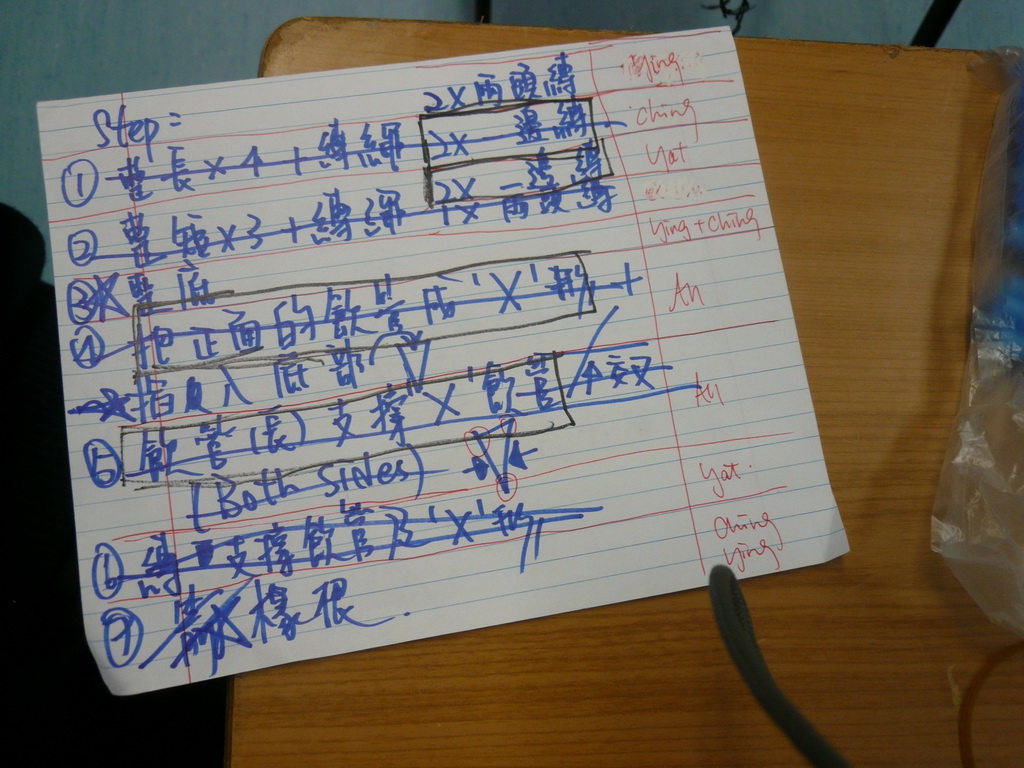 2X 兩頭縛
Ying
Step:
2X 一邊縛
Ching
① 整長 x 4 + 縛繩
2X 一邊縛
Yat
② 整短 x 3 + 縛繩 1x 兩頭縛
Ying + Ching
③ 整底
④ 把正面的飲管成 'X' 形 +
An
插入底部
⑤ 飲管(長) 支撐 'X' 飲管 / 交叉
An
(Both sides)
Yat
⑥ 縛支撐飲管及 'X' 形
Ching
Ying
⑦ 橡根